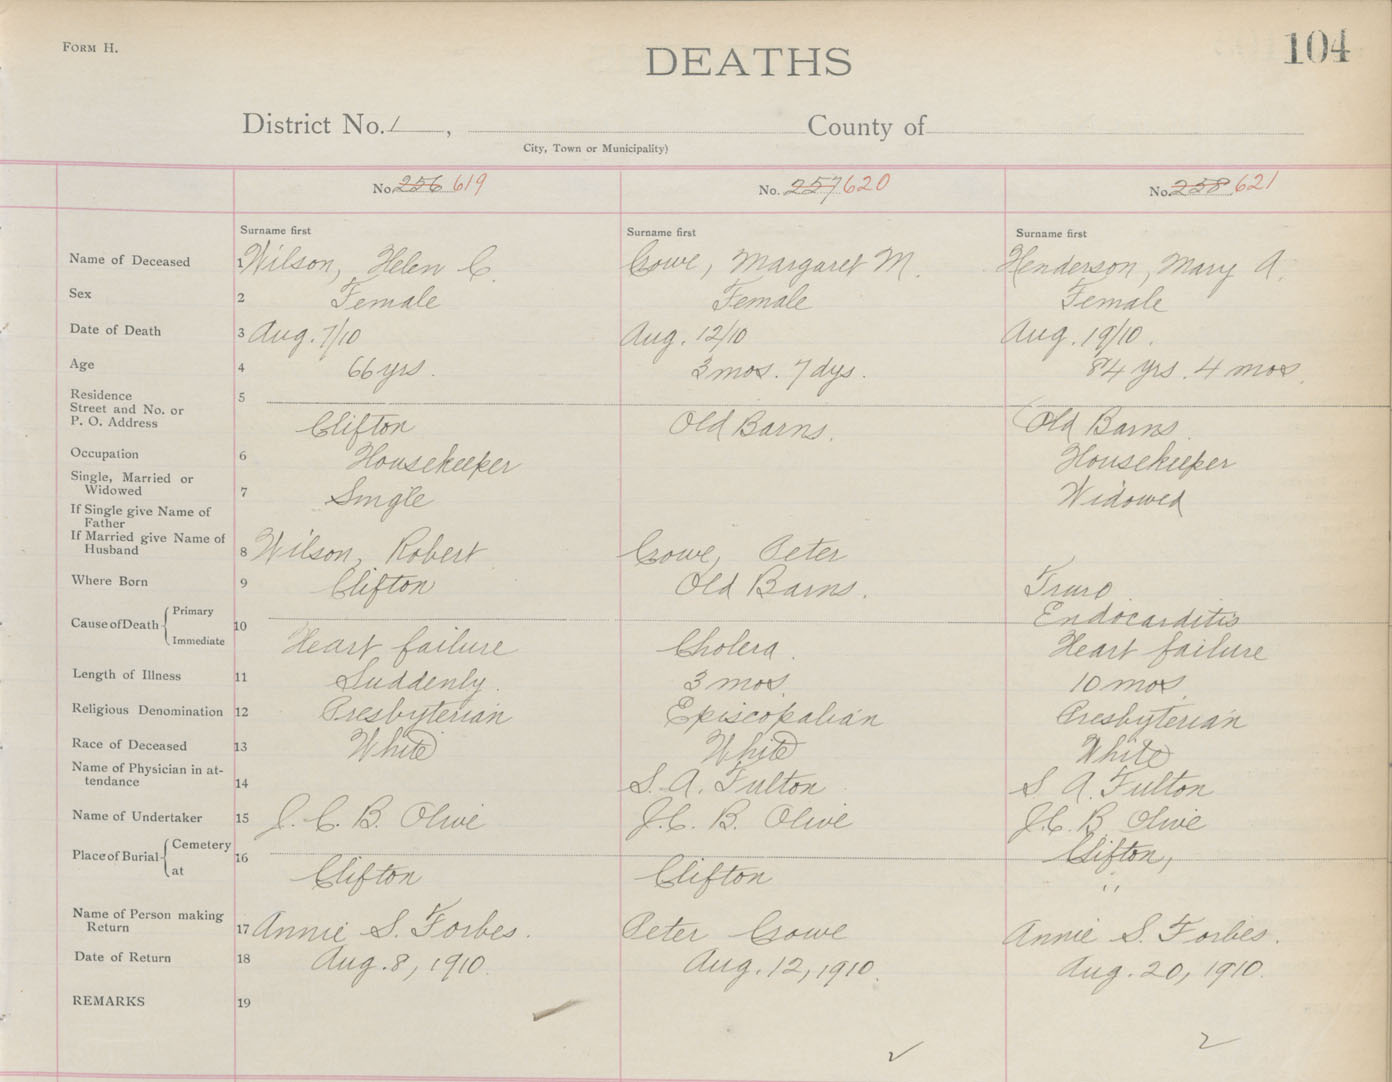 FORM H.
DEATHS
104
District No. 1, County of
City, Town or Municipality)
No. 256 619 No. 257 620 No. 258 621
Surname first Surname first Surname first
Name of Deceased 1 Wilson, Helen C. Crowe, Margaret M. Henderson, Mary A.
Sex 2 Female Female Female
Date of Death 3 Aug. 7/10 Aug. 12/10 Aug. 19/10.
Age 4 66 yrs. 3 mos. 7 dys. 84 yrs. 4 mos.
Residence 5
Street and No. or
P. O. Address Clifton Old Barns. Old Barns.
Occupation 6 Housekeeper Housekeeper
Single, Married or
Widowed 7 Single Widowed
If Single give Name of
Father
If Married give Name of
Husband 8 Wilson, Robert Crowe, Peter
Where Born 9 Clifton Old Barns. Truro
Cause of Death 10 Primary Endocarditis
Immediate Heart failure Cholera. Heart failure
Length of Illness 11 Suddenly. 3 mos. 10 mos.
Religious Denomination 12 Presbyterian Episcopalian Presbyterian
Race of Deceased 13 White White White
Name of Physician in at-
tendance 14 S. A. Fulton S. A. Fulton
Name of Undertaker 15 J. C. B. Olive J. C. B. Olive J. C. B. Olive
Place of Burial 16 Cemetery Clifton,
at Clifton Clifton "
Name of Person making
Return 17 Annie S. Forbes. Peter Crowe Annie S. Forbes.
Date of Return 18 Aug. 8, 1910. Aug. 12, 1910. Aug. 20, 1910.
REMARKS 19